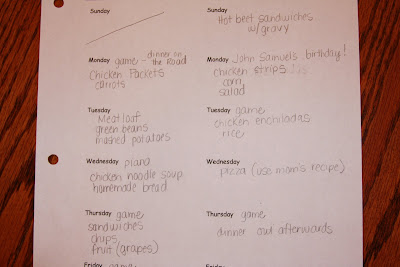 Sunday
Monday game - dinner on
the Road
chicken Packets
carrots
Tuesday
Meatloaf
green beans
mashed potatoes
Wednesday piano
chicken noodle soup
homemade bread
Thursday game
sandwiches
chips
fruit (grapes)
Friday
Sunday
Hot beef sandwiches
w/gravy
Monday John Samuel's birthday!
chicken strips
corn
salad
Tuesday game
chicken enchiladas
rice
Wednesday
pizza (use mom's recipe)
Thursday game
dinner out afterwards
Friday